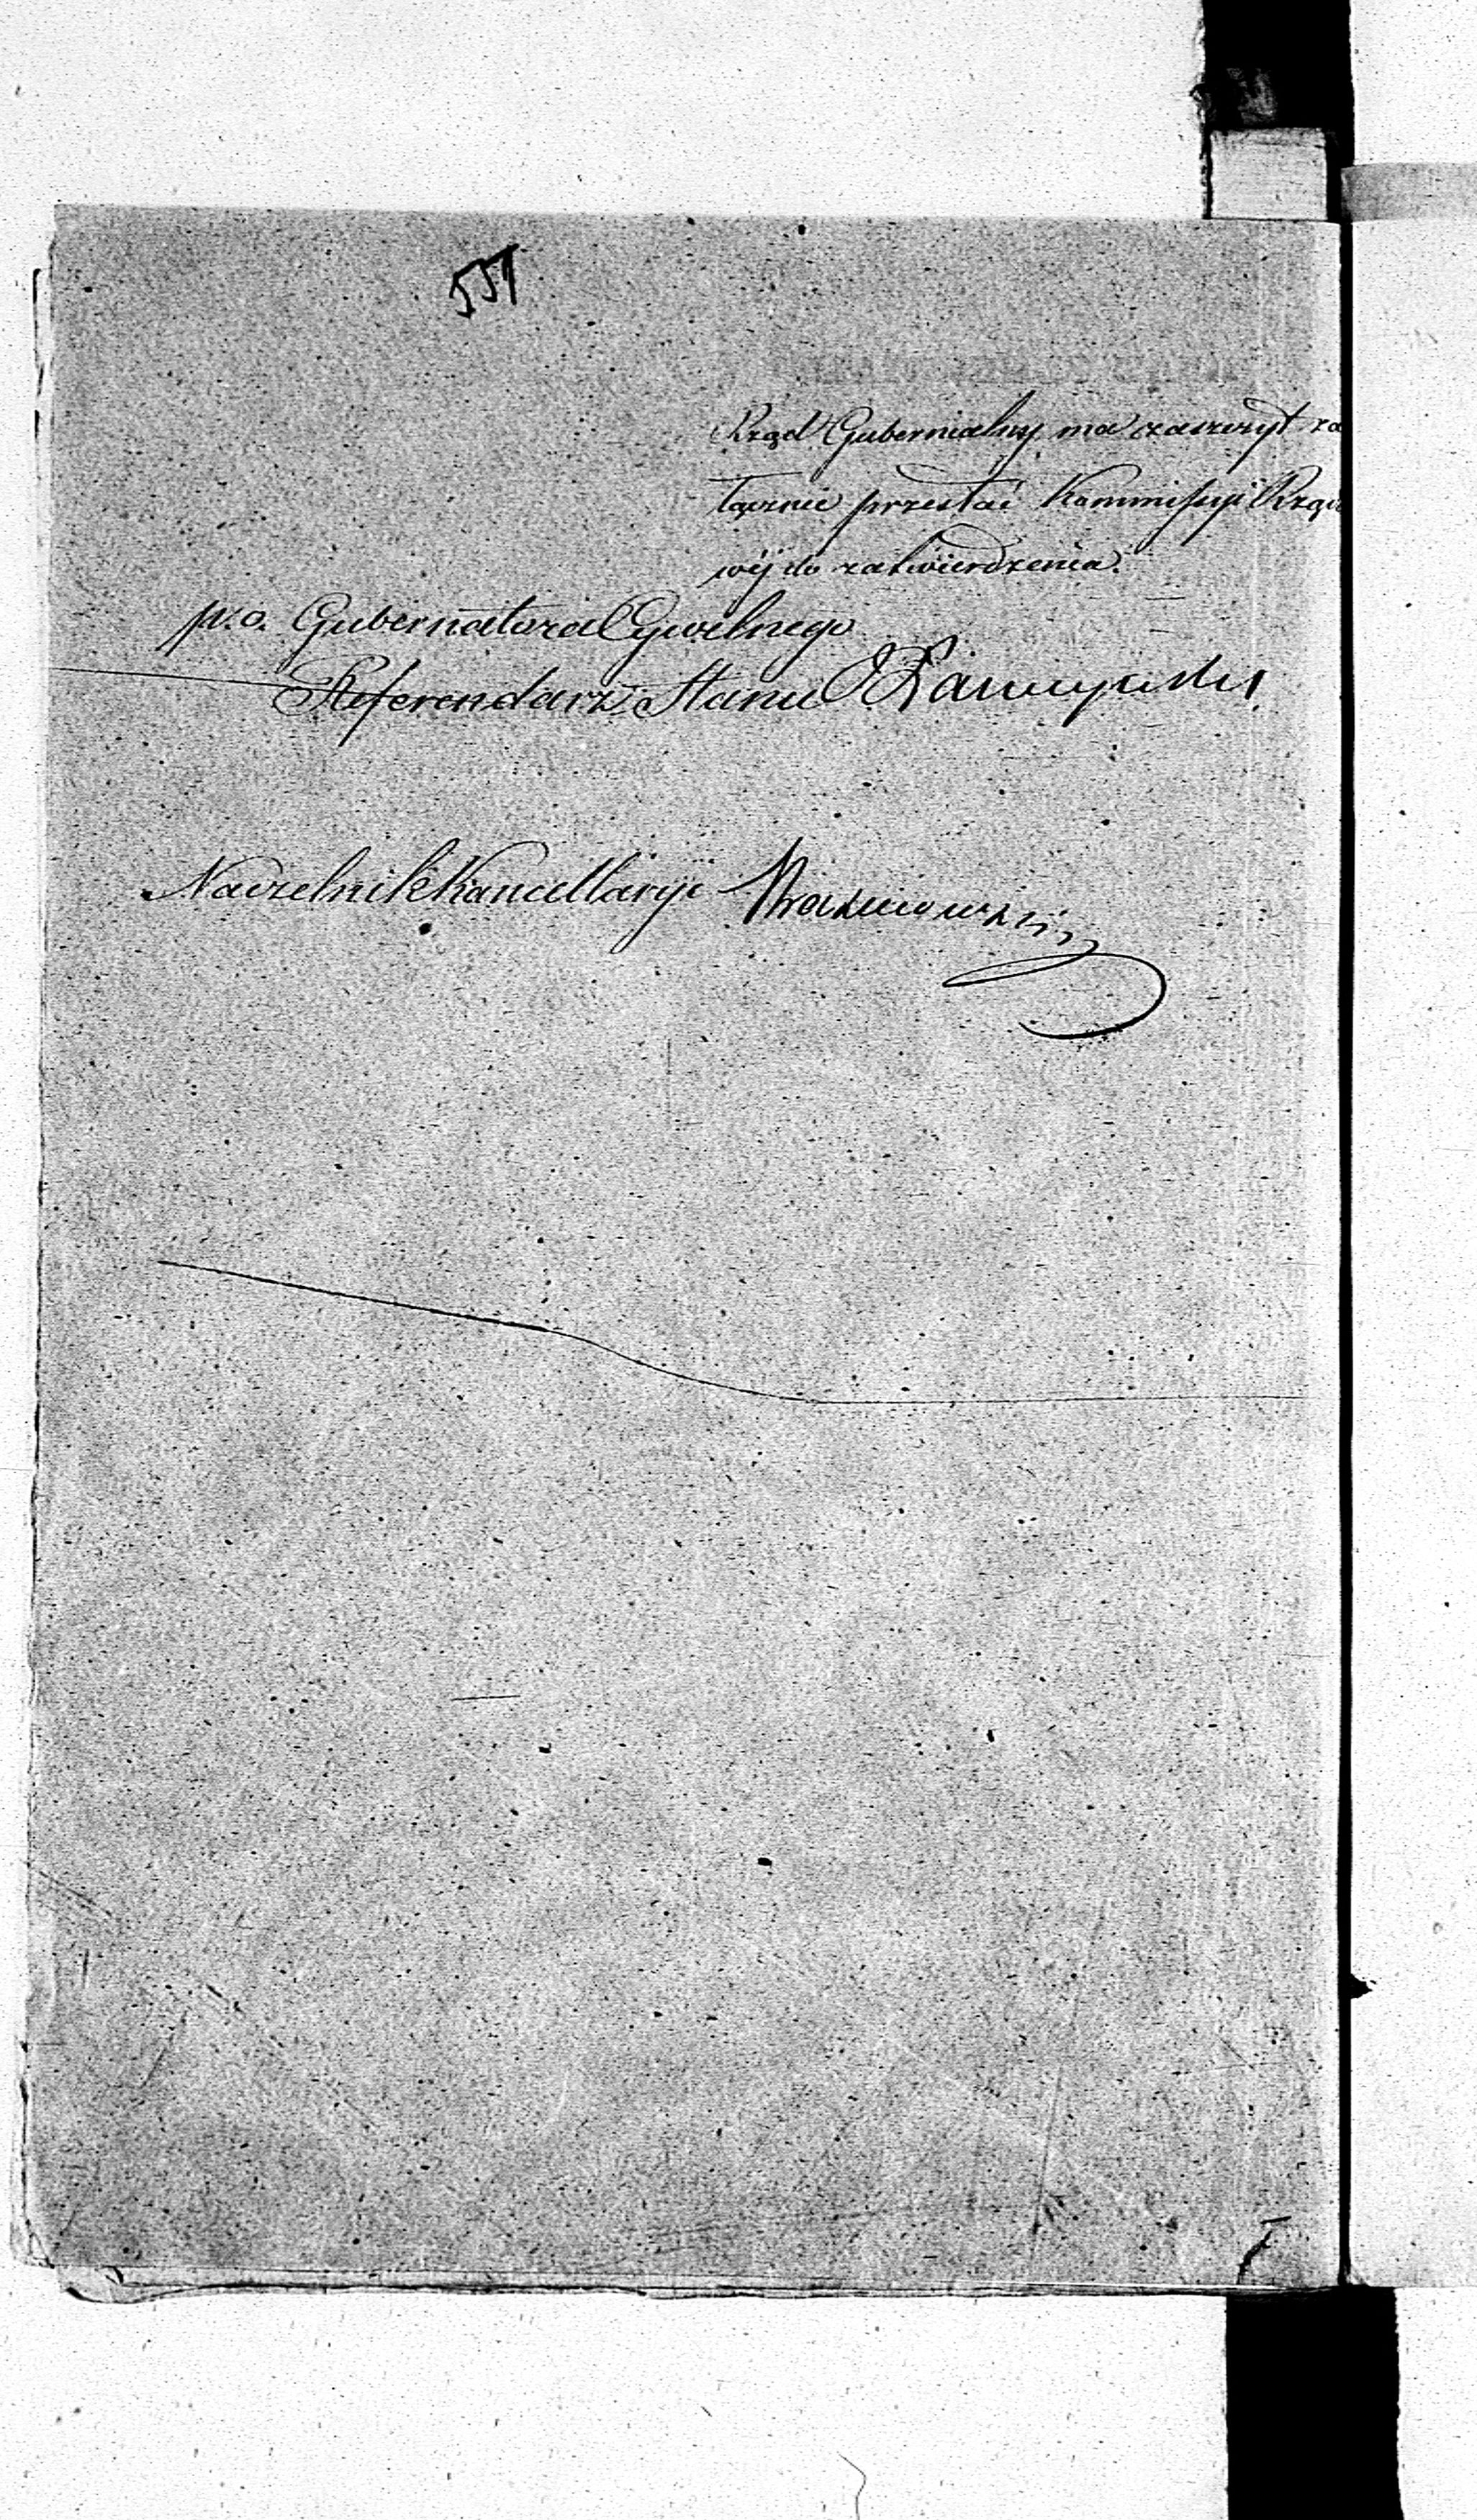 557
Rząd Gubernialny ma zaszczyt za
łącznie przesłać Kommissyi Rządo
wéj do zatwierdzenia.
p.o. Gubernatora Cywilnego
Referendarz Stanu
Naczelnik Kancellaryi